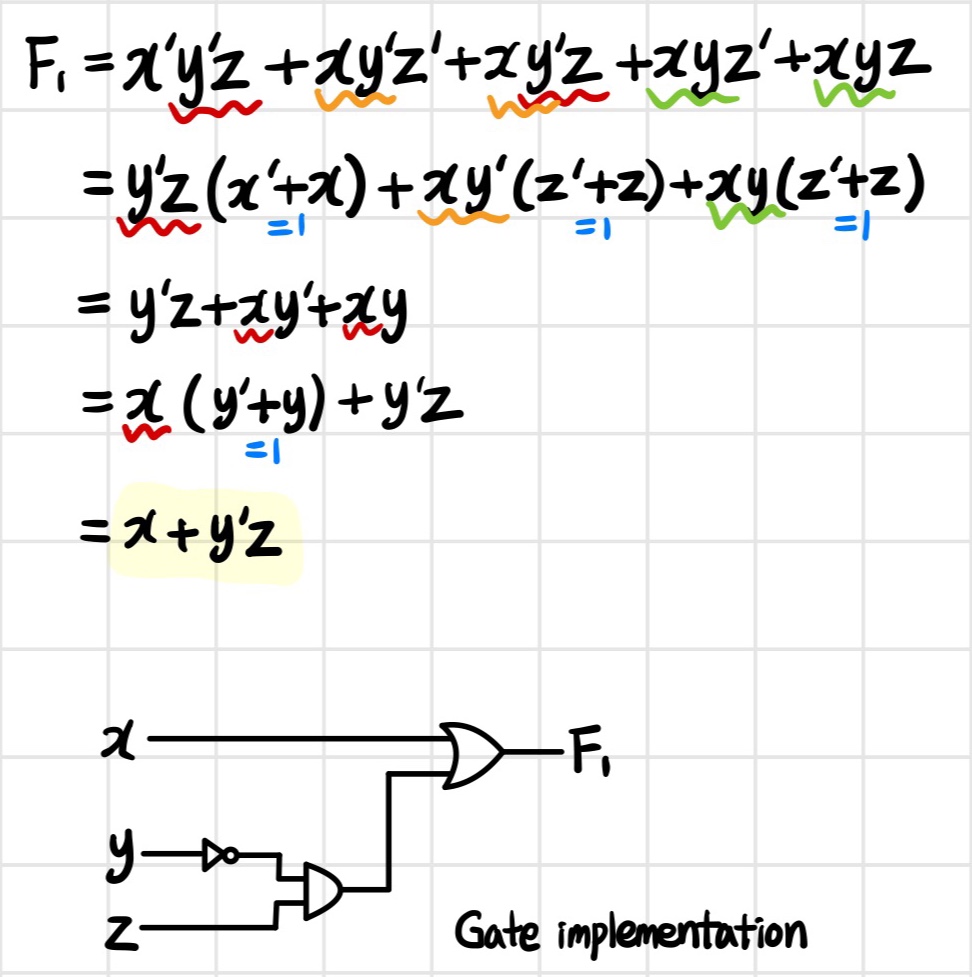 F₁ = x'y'z + xy'z' + xy'z + xyz' + xyz
= y'z(x'+x) + xy'(z'+z) + xy(z'+z)
=1 =1 =1
= y'z + xy' + xy
= x (y'+y) + y'z
=1
= x + y'z
x F₁
y
z
Gate implementation